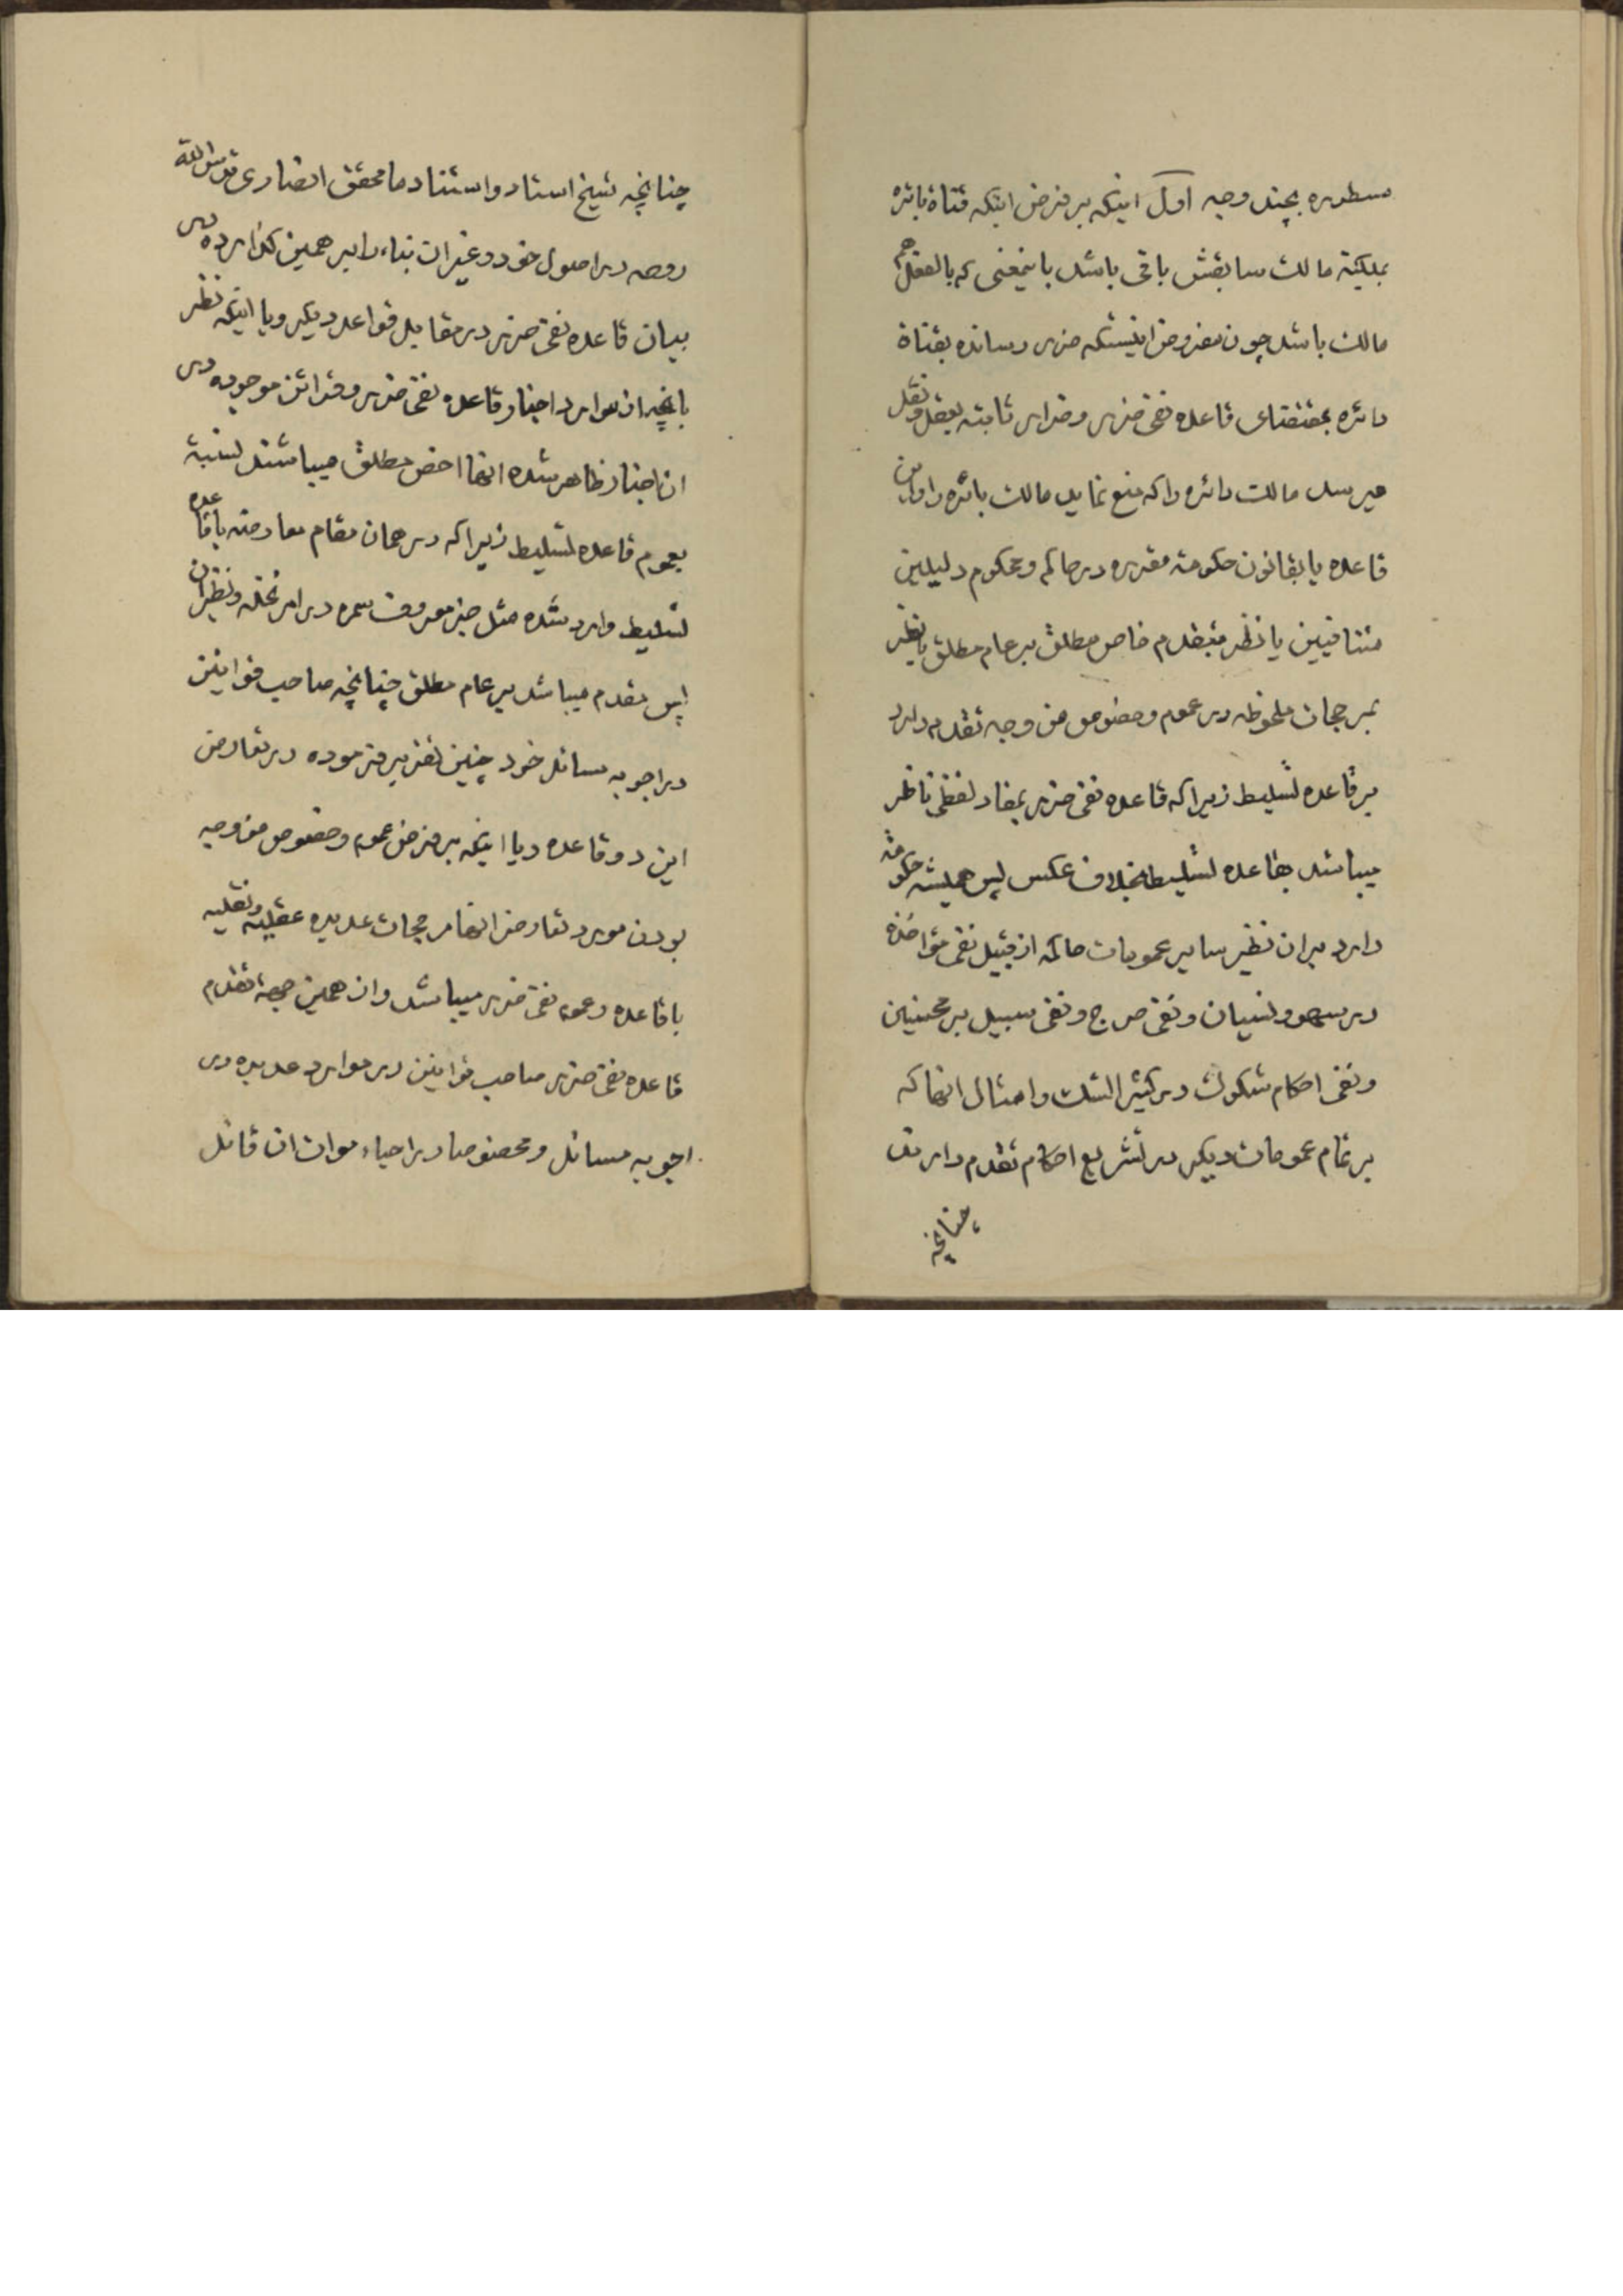 مسطوره بچند وجه اول اینکه بر فرض اینکه قناة بائره
بملکیة مالك سابقش باقی باشد باینمعنی که بالفعل هم
مالك باشد چون مفروض اینستکه ضرر رسانده بقناة
دائره بمقتضای قاعده نفی ضرر و ضرار ثابته بعقل و نقل
میرسد مالك دائره را که منع نماید مالك بائره را و این
قاعده یا بقانون حکومة مقرره در حاکم و محکوم دلیلین
متنافیین یا نظر بتقدم خاص مطلق بر عام مطلق یا نظر
بمرجحات ملحوظه در عموم و خصوص من وجه تقدم دارد
بر قاعده تسلیط زیرا که قاعده نفی ضرر بمفاد لفظی ناظر
میباشد بقاعده تسلیط بخلاف عکس پس همیشه حکومة
دارد بران نظیر سایر عمومات حاکمه از قبیل نفی مؤاخذه
در سهو و نسیان و نفی حرج و نفی سبیل بر محسنین
و نفی احکام شکوك در کثیر الشك و امثال انها که
بر تمام عمومات دیگر در تشریع احکام تقدم دارند
چنانچه
چنانچه شیخ استاد و استناد ما محقق انصاری قدس الله
روحه در اصول خود و غیر ان بناء را بر همین گذارده در
بیان قاعده نفی ضرر در مقابل قواعد دیگر و یا اینکه نظر
بانچه از موارد اخبار قاعده نفی ضرر و قرائن موجوده در
ان اخبار ظاهر شده انها اخص مطلق میباشند نسبة
بعموم قاعده تسلیط زیرا که در همان مقام معارضه با قاعده
تسلیط وارد شده مثل خبر معروف سمره در امر نخله و نظیر ان
پس مقدم میباشد بر عام مطلق چنانچه صاحب قوانین
در اجوبه مسائل خود چنین تقریر فرموده در تعارض
این دو قاعده و یا اینکه بر فرض عموم و خصوص من وجه
بودن مورد تعارض انها مرجحات عدیده عقلیه و نقلیه
با قاعده و عموم نفی ضرر میباشد و از همین جهة تقدم
قاعده نفی ضرر صاحب قوانین در موارد عدیده در
اجوبه مسائل و خصوصا در احیاء موات ان قائل